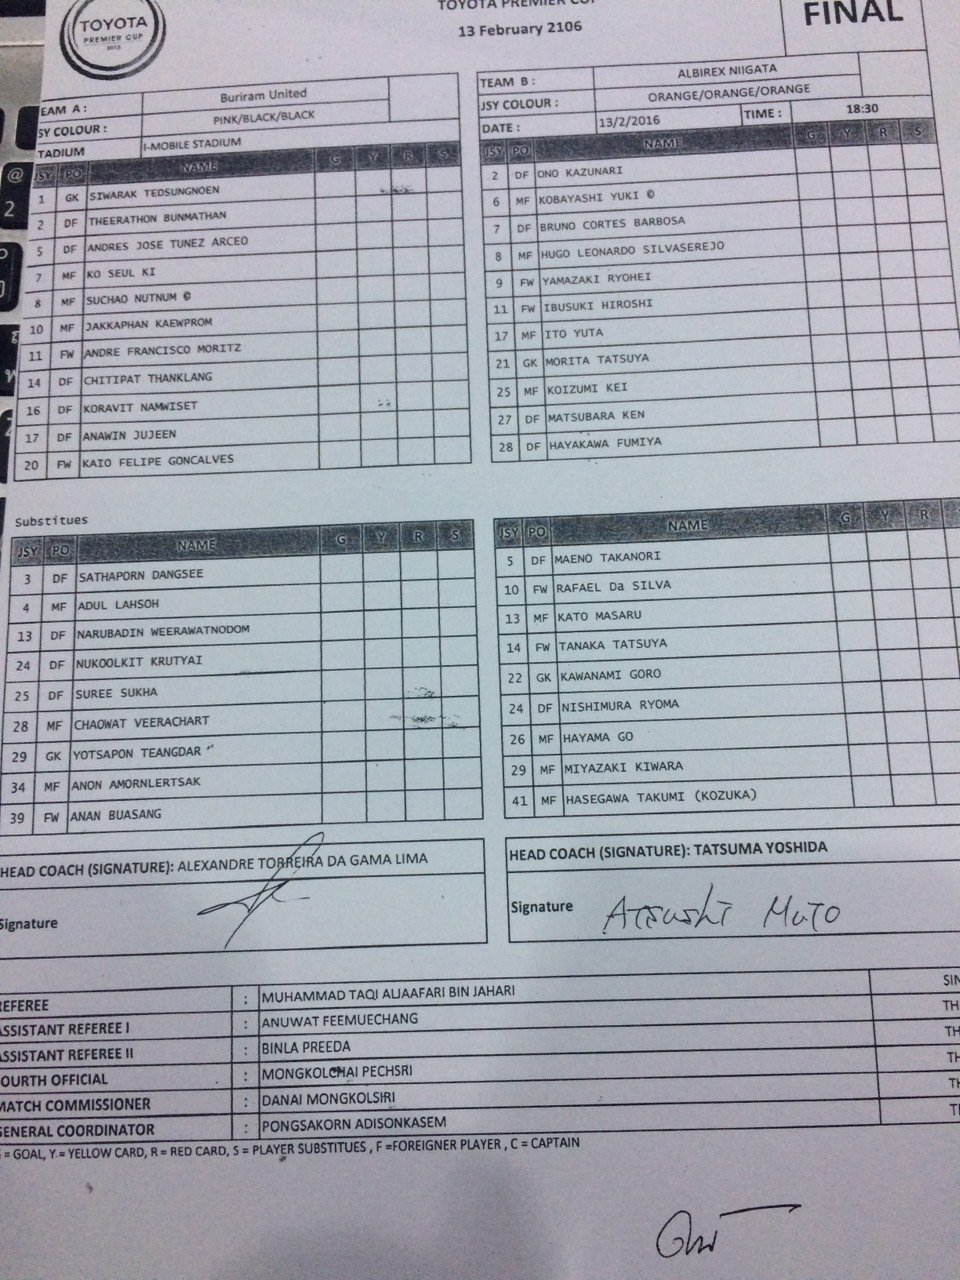 TOYOTA PREMIER CUP
13 February 2106
FINAL
TOYOTA
PREMIER CUP
2015
EAM A : Buriram United
SY COLOUR : PINK/BLACK/BLACK
TADIUM I-MOBILE STADIUM
JSY PO NAME G Y R S
1 GK SIWARAK TEDSUNGNOEN
2 DF THEERATHON BUNMATHAN
5 DF ANDRES JOSE TUNEZ ARCEO
7 MF KO SEUL KI
8 MF SUCHAO NUTNUM ©
10 MF JAKKAPHAN KAEWPROM
11 FW ANDRE FRANCISCO MORITZ
14 DF CHITIPAT THANKLANG
16 DF KORAVIT NAMWISET
17 DF ANAWIN JUJEEN
20 FW KAIO FELIPE GONCALVES
TEAM B : ALBIREX NIIGATA
JSY COLOUR : ORANGE/ORANGE/ORANGE
DATE : 13/2/2016 TIME : 18:30
JSY PO NAME G Y R S
2 DF ONO KAZUNARI
6 MF KOBAYASHI YUKI ©
7 DF BRUNO CORTES BARBOSA
8 MF HUGO LEONARDO SILVASEREJO
9 FW YAMAZAKI RYOHEI
11 FW IBUSUKI HIROSHI
17 MF ITO YUTA
21 GK MORITA TATSUYA
25 MF KOIZUMI KEI
27 DF MATSUBARA KEN
28 DF HAYAKAWA FUMIYA
Substitues
JSY PO NAME G Y R S
3 DF SATHAPORN DANGSEE
4 MF ADUL LAHSOH
13 DF NARUBADIN WEERAWATNODOM
24 DF NUKOOLKIT KRUTYAI
25 DF SUREE SUKHA
28 MF CHAOWAT VEERACHART
29 GK YOTSAPON TEANGDAR
34 MF ANON AMORNLERTSAK
39 FW ANAN BUASANG
JSY PO NAME G Y R
5 DF MAENO TAKANORI
10 FW RAFAEL Da SILVA
13 MF KATO MASARU
14 FW TANAKA TATSUYA
22 GK KAWANAMI GORO
24 DF NISHIMURA RYOMA
26 MF HAYAMA GO
29 MF MIYAZAKI KIWARA
41 MF HASEGAWA TAKUMI (KOZUKA)
HEAD COACH (SIGNATURE): ALEXANDRE TORREIRA DA GAMA LIMA
Signature
HEAD COACH (SIGNATURE): TATSUMA YOSHIDA
Signature Atsushi Muto
REFEREE : MUHAMMAD TAQI ALJAAFARI BIN JAHARI SIN
ASSISTANT REFEREE I : ANUWAT FEEMUECHANG TH
ASSISTANT REFEREE II : BINLA PREEDA TH
FOURTH OFFICIAL : MONGKOLCHAI PECHSRI TH
MATCH COMMISSIONER : DANAI MONGKOLSIRI TH
GENERAL COORDINATOR : PONGSAKORN ADISONKASEM TH
G = GOAL, Y = YELLOW CARD, R = RED CARD, S = PLAYER SUBSTITUES , F =FOREIGNER PLAYER , C = CAPTAIN